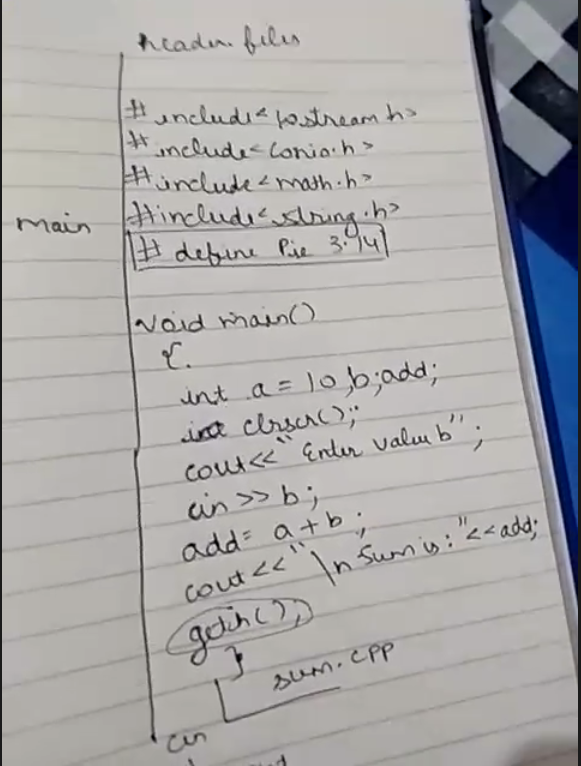 header files
# include< iostream.h>
# include<conio.h>
# include<math.h>
main
#include<string.h>
# define Pie 3.14
void main()
{
int a = 10,b;add;
clrscr();
cout<<"Enter value b";
cin>>b;
add= a+b;
cout<<"\n Sum is:"<<add;
getch();
}
sum.cpp
cin